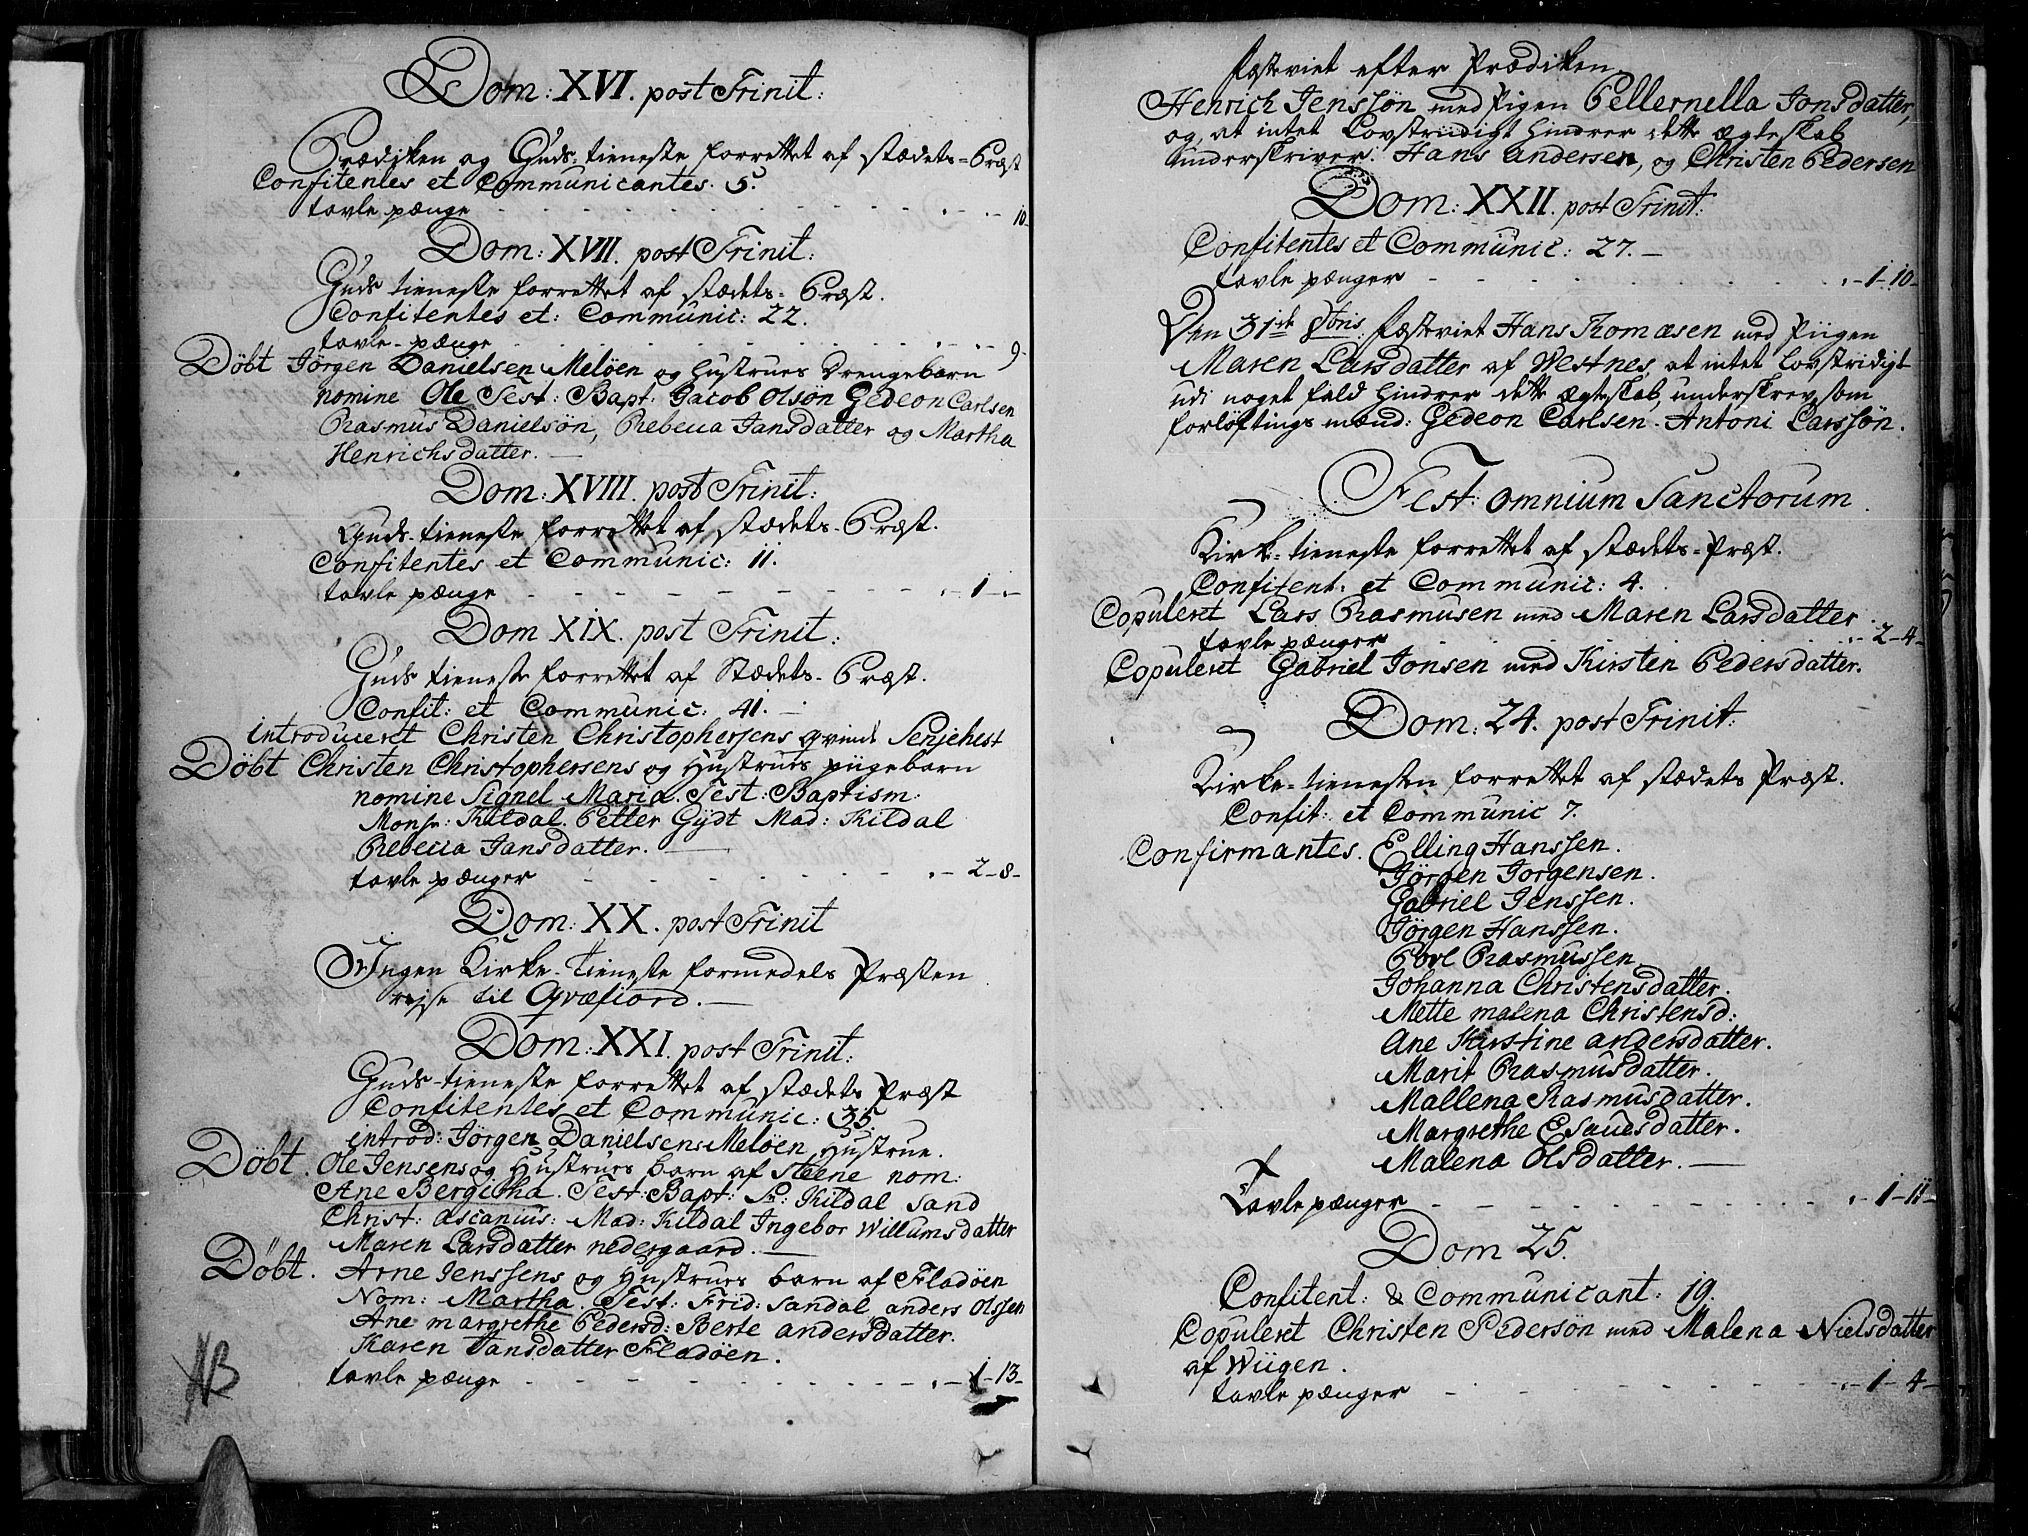 Dom: XVI. post Trinit:
Prædiken og Guds-tieneste forrettet af stædets-Præst
Confitentes et Communicantes. 5.
tavle penge - - - 10
Dom: XVII. post Trinit:
Guds tieneste forrettet af stædets-Præst.
Confitentes et: Communic: 22.
tavle-pænge - - - 9-
Döbt Jörgen Danielsen Melöen og Hustrues Drengebarn
nomine Ole Test: Bapt: Jacob Olsön Gedeon Carlsen
Rasmus Danielsön, Rebecca Jansdatter og Martha
Henrichsdatter.
Dom: XVIII. post Trinit:
Guds-tieneste forrettet af stædets-Præst.
Confitentes et Communic: 11.
tavle pænge - - - 1 -
Dom XIX. post Trinit:
Guds tieneste forrettet af Stædets-Præst.
Confit: et Communic: 41. -
introduceret Christen Christophersens qvinde Senjehest
Döbt Christen Christophersens og Hustrues piigebarn
nomine Signel Maria. Test: Baptism:
Monsr: Kildal. Petter Gÿdt Mad: Kildal
Rebecca Jansdatter.
tavle pænger - - - 2-8-
Dom: XX. post Trinit
Ingen Kirke-Tieneste formedels Præsten
rejse til Qvæfiord.
Dom: XXI. post Trinit:
Guds-tieneste forrettet af stædets Præst
Confitentes et Communic: 35.
introd: Jörgen Danielsens Melöen Hustrue.
Döbt. Ole Jensens og Hustrues barn af Steene nom:
Ane Bergitha. Test: Bapt: Sr: Kildal Sand
Christ: Ascanius: Mad: Kildal Ingebor Willumsdatter
Maren Larsdatter nedergaard.
Döbt. Arne Jenssens og Hustrues barn af Fladöen
Nom: Martha. Test: Frid: Sandal anders Olssen
Ane margrethe Pedersd: Berte andersdatter.
Karen Jansdatter Fladöen.
tavle pænge - - - 1-13-
NB
fæsteviet efter Prædiken
Henrich Jenssön med Pigen Pellernella Jonsdatter,
og, at intet Lovstriidigt hindrer dette ægteskab
underskriver. Hans andersen, og Christen Pedersen
Dom: XXII. post Trinit:
Confitentes et Communic: 27. -
tavle pænger - - - 1-10-
Den 31te 8bris. fæsteviet Hans Thomæsen med Piigen
Maren Larsdatter af Westnes, at intet Lovstridigt
udi noget fald hindrer dette ægteskab, underskrev som
forlöftings mænd: Gedeon Carlsen. Antoni Larssön.
Fest: omnium Sanctorum.
Kirke-tieneste forrettet af stædets-Præst.
Confitent: et Communic: 4.
Copuleret Lars Rasmusen med Maren Larsdatter.
tavle pænger - - - 2-4-
Copuleret Gabriel Jonsen med Kirsten Pedersdatter.
Dom: 24. post Trinit:
Kirke-tienesten forrettet af stædets Præst.
Confit: et Communic 7.
Confirmantes. Elling Hanssen.
Jörgen Jorgensen.
Gabriel Jenssen.
Jörgen Hanssen.
Povl Rasmussen
Johanna Christensdatter.
Mette malena Christensd:
Ane Kirstine andersdatter.
Marit Rasmusdatter.
Mallena Rasmusdatter.
Margrethe Esauesdatter.
Malena Olsdatter.
Tavle pænger - - - 1-11-
Dom 25.
Confitent: & Communicant: 19.
Copuleret Christen Pedersön med Malena Nielsdatter
af Wiigen.
tavle pænger - - - 1-4-